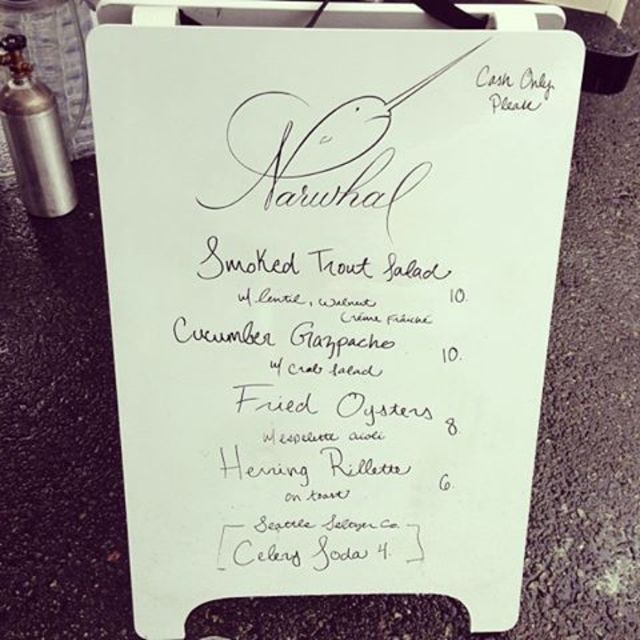 Cash Only
Please
Narwhal
Smoked Trout Salad
w/ lentil, walnut 10.
Crème Fraîche
Cucumber Gazpacho 10.
w/ crab salad
Fried Oysters 8.
w/ espelette aioli
Herring Rillette 6.
on toast
Seattle Seltzer Co.
Celery Soda 4.